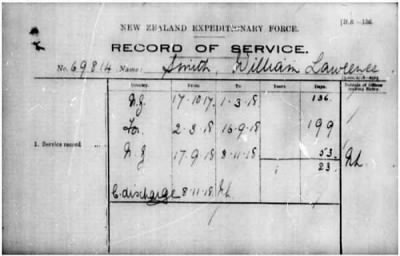 [D.S.—136.
NEW ZEALAND EXPEDITIONARY FORCE.
RECORD OF SERVICE.
No. 69814 Name: Smith, William Lawrence
Country. From. To. Years. Days.
N.Z. 17-10-17. 1-3-18 136.
Fn. 2-3-18 16-9-18 199
1. Service record
N.Z 17-9-18 8-11-18 53.
1 23.
discharge 8-11-18